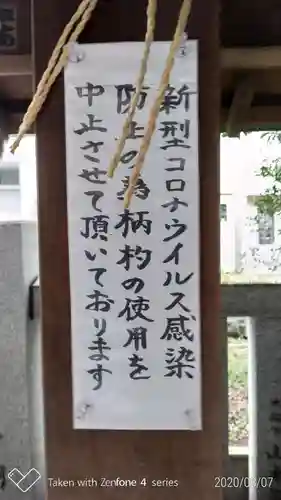 新型コロナウイルス感染
防止の為柄杓の使用を
中止させて頂いております
Taken with Zenfone 4 series
2020/03/07
2020/03/07